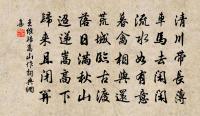 清川帶長薄
車馬去閑閑
流水如有意
暮禽相與還
荒城臨古渡
落日滿秋山
迢遞嵩高下
歸來且閉關
王維歸嵩山作詞典網